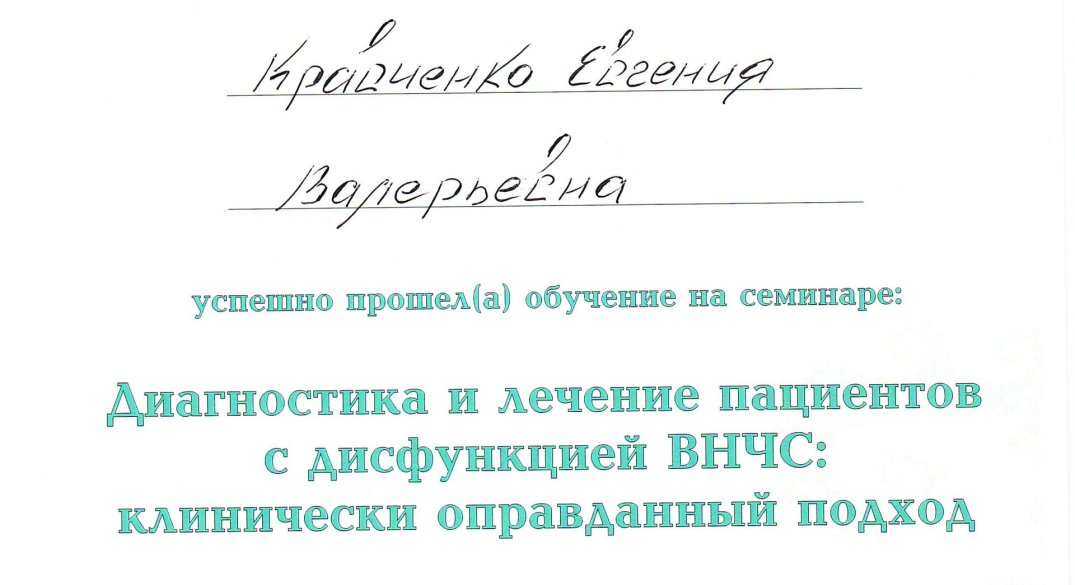 Кравченко Евгения
Валерьевна
успешно прошел(а) обучение на семинаре:
Диагностика и лечение пациентов
с дисфункцией ВНЧС:
клинически оправданный подход